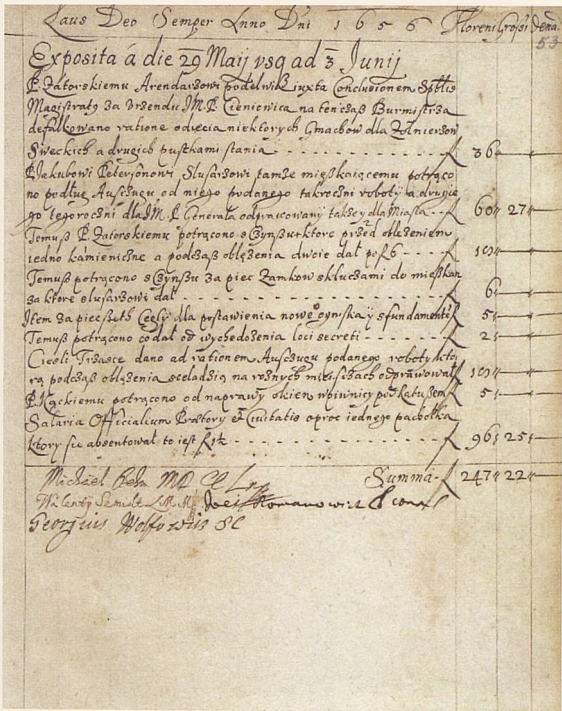 Laus Deo Semper Anno Dni 1656 Floreni Grossi Dena.
53
Exposita á die 29 Maij usq ad 3 Junij
P. Zatorskiemu Arendarzowi podolwik iuxta Conclusionem Spltis
Magistratq za Vrzendu JMP. Cieniowica na tenczas Burmistrza
defalkowano ratione odięcia niektorych Gmachow dla Żołnierzow
Sweckich a drugich pustkami stania - - - f 36 〃
P. Jakubowi Petersonowi Slusarzowi tamże mięszkaiącemu potrąco
no podług Auszugu od niego podanego takroczni roboty a drugie
go tegoroczni dla JM. P. Generała odpracowany także y dla Miasta - - f 60 〃 27 〃
Temuß P. Zatorskiemu potrącono s Czynßu ktore przed oblężeniem
iedno kamieniczne a podczaß oblężenia dwoie dał po f 6 - - - f 10 〃
Temuß potrącono s Czynßu za piec Zamkow skluczami do mießkan
za ktore slusarzowi dał - - - f 6 〃
Item za piec Cegly dla prstawienia nowe ogniska y sfundamenti f 5 〃
Temuß potrącono co dał od wychedożenia loci secreti - - - f 2 〃
Cieśli Trzasce dano ad rationem Auszugu podanego roboty kto
rą podczaß oblężenia sczeladzią na rożnych mieiscach odprawował f 10 〃
P. Kąckiemu potrącono od naprawy okien wpiwnicy pod Ratußem f 5 〃
Salaria Officialium Prætory et Civitatis oprocz iednego pachołka
ktory sie absentował to iest f 1½ - - - f 96 〃 25 〃
Summa f 247 〃 22 〃
Michael Behm
Walenty
Romanowicz
Georgius Wolfowicz SC